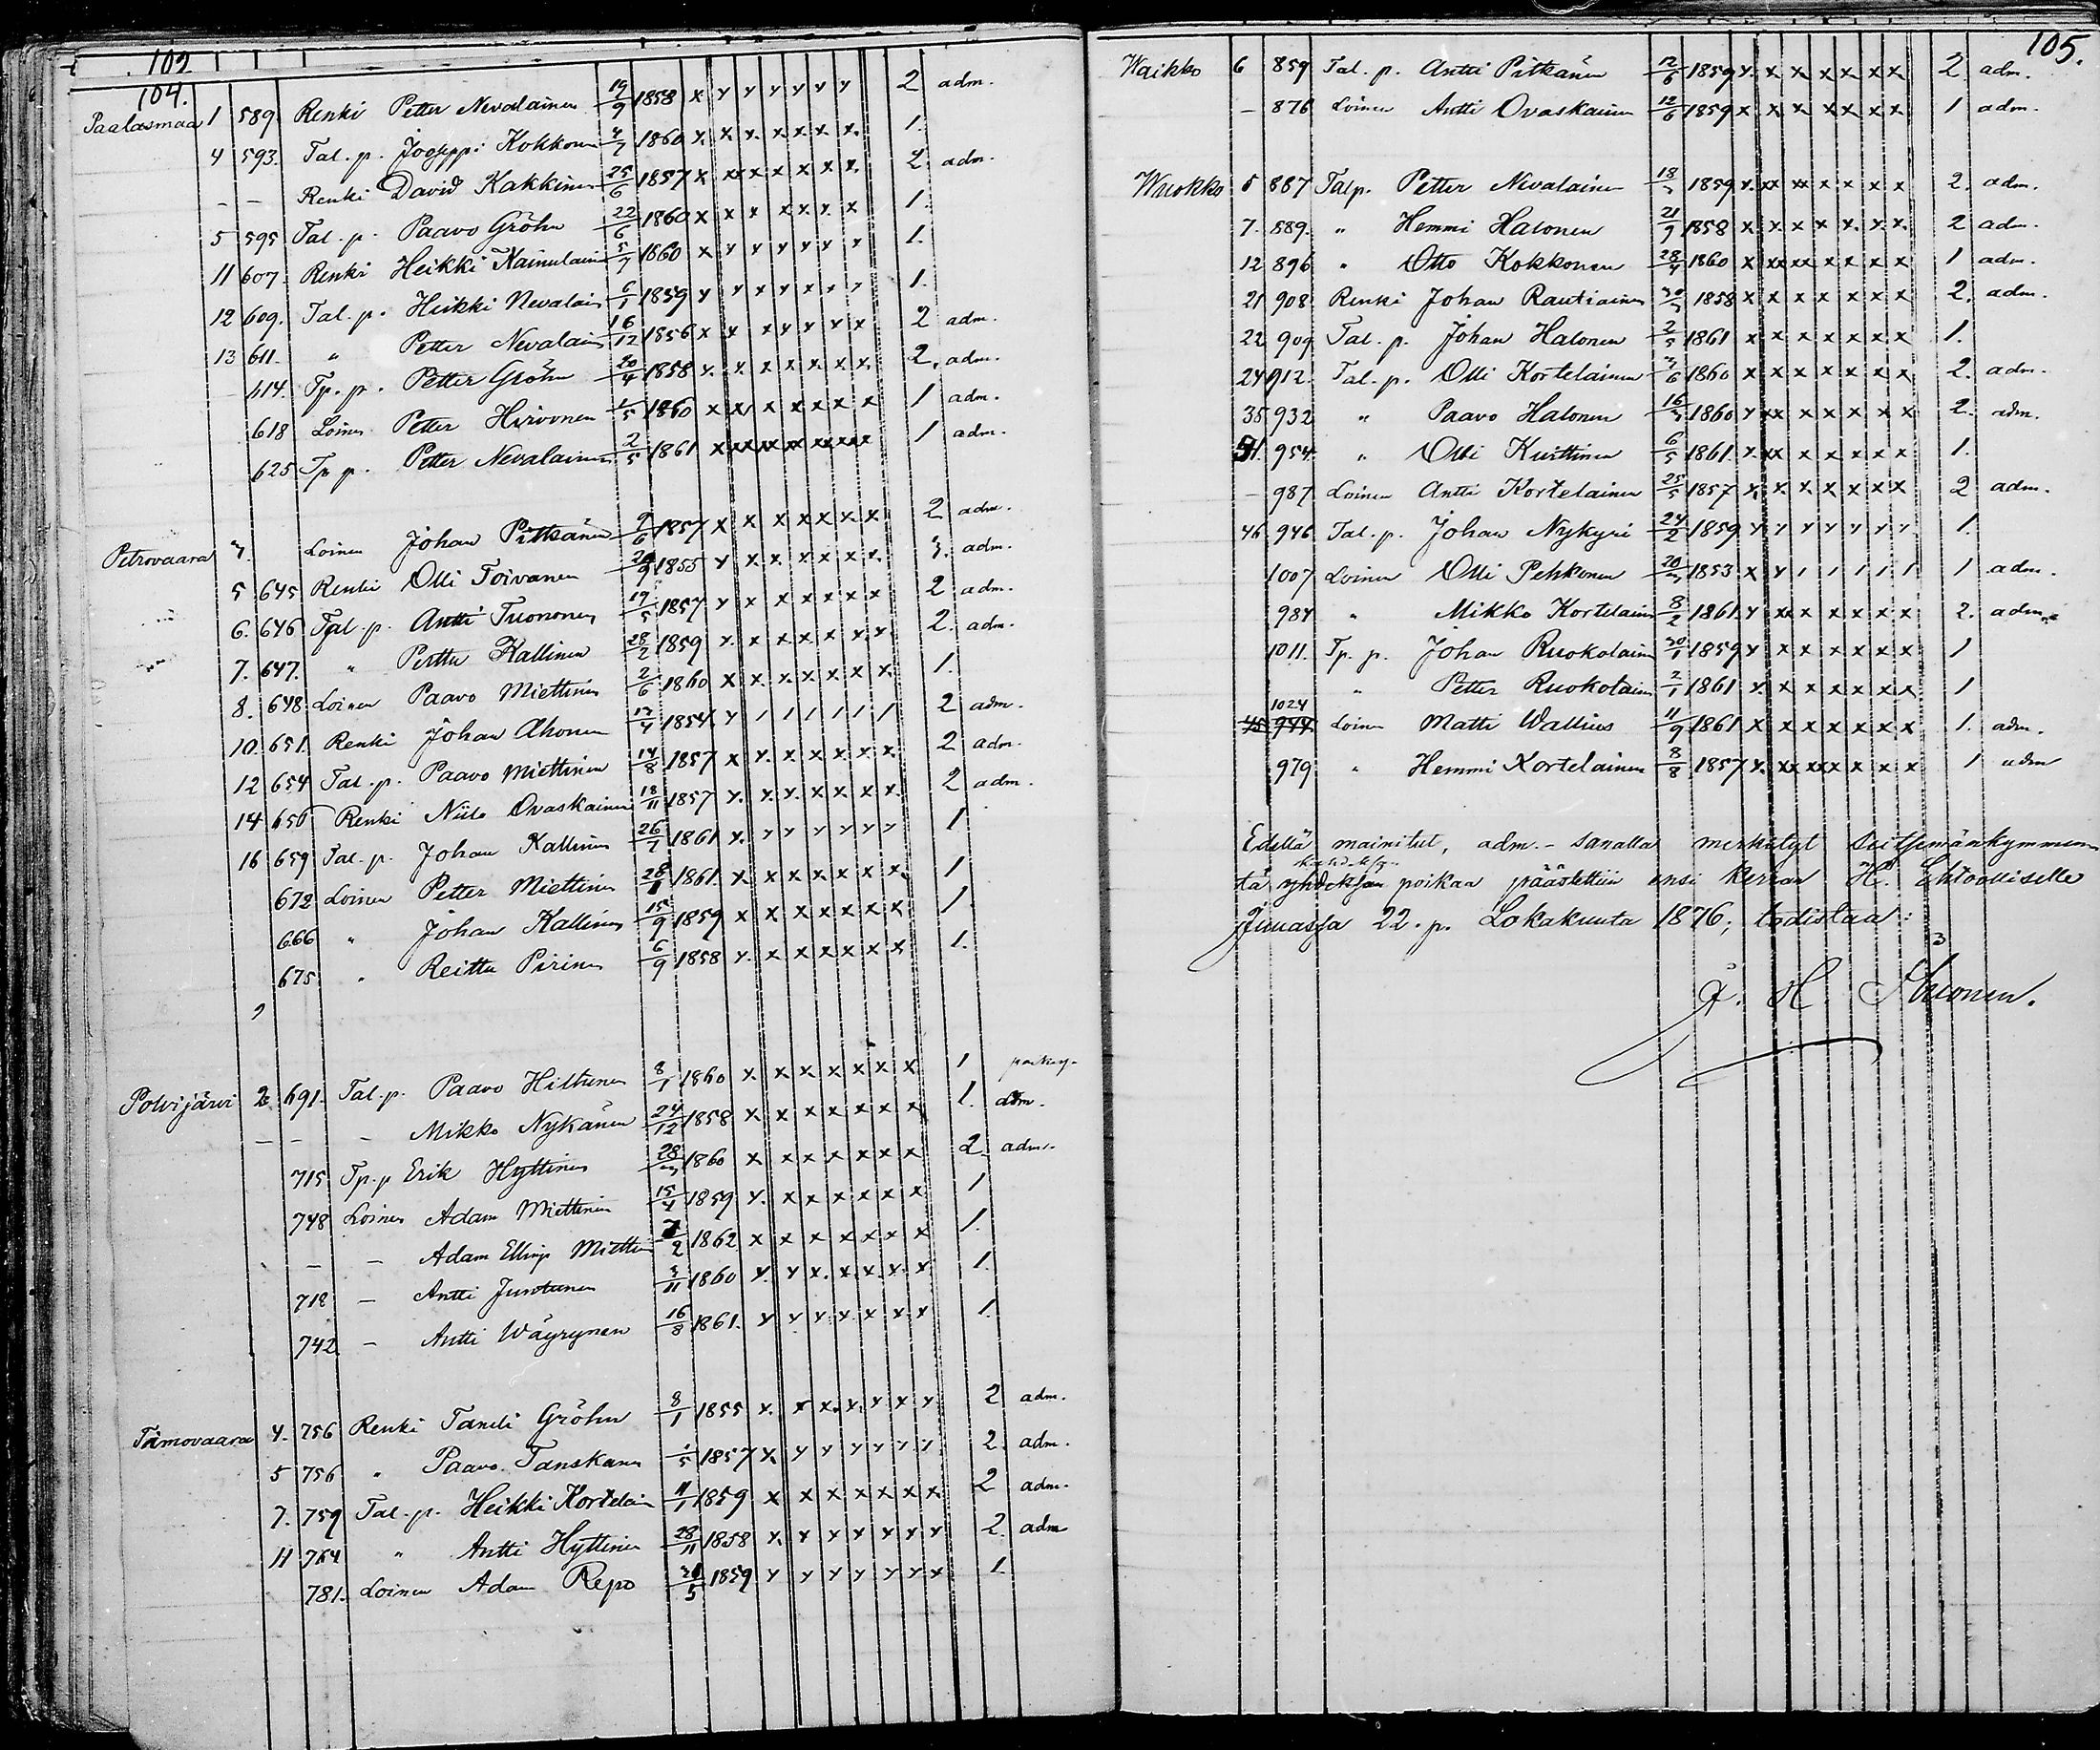 102
104.
Paalasmaa 1 589 Renki Petter Nevalainen 19/9 1858 x y y y y y y 2 adm.
4 593. Tal. p. Jooseppi Kokkonen 4/7 1860 x x x x x x x 1.
– – Renki David Kakkinen 25/6 1857 x xx x x x x x 2 adm.
5 595 Tal. p. Paavo Gröhn 22/6 1860 x x x x x x x 1.
11 607. Renki Heikki Kainulain 5/7 1860 x y y y y y y 1.
12 609. Tal. p. Heikki Nevalain 6/1 1859 y y x y x x y 1.
13 611. " Petter Nevalain 16/12 1856 x x x y y y x 2 adm.
614. Tp. p. Petter Gröhn 20/4 1858 x x x x x x x 2. adm.
618 Loinen Petter Hirvonen 1/5 1860 x xx x x x x x 1 adm.
625 Tp p. Petter Nevalainen 2/5 1861 x xx xx xx xx xx xx 1 adm.
Petrovaara Loinen Johan Pitkänen 9/6 1857 x x x x x x x 2 adm.
5 645 Renki Olli Toivanen 1855 y x x x x x x adm.
6. 646 Tal. p. Antti Tuononen 19/5 1857 y x x x x x x 2 adm.
7. 647. " Perttu Kallinen 28/2 1859 x x x x x x x 2. adm.
8. 648 Loinen Paavo Miettinen 2/6 1860 x x x x x x x 1.
10. 651. Renki Johan Ahonen 17/4 1854 y / / / / / / 2 adm.
12 654 Tal. p. Paavo Miettinen 14/8 1857 x x x x x x x 2 adm.
14 656 Renki Niilo Ovaskainen 18/11 1857 y. x x x x x x 2 adm.
16 659 Tal. p. Johan Kallinen 26/7 1861 y y y y y y y 1
672 Loinen Petter Miettinen 1861. x x x x x x x 1
666 " Johan Kallinen 15/9 1859 x x x x x x x 1
675 " Reittu Pirinen 6/9 1858 x x x x x x x 1.
Polvijärvi 2 691. Tal. p. Paavo Hiltunen 8/1 1860 x x x x x x x 1
– – – Mikko Nykänen 24/12 1858 x x x x x x x 1. adm.
715 Tp. p Erik Hyttinen 28/3 1860 x x x x x x x 2. adm.
748 Loinen Adam Miettinen 15/4 1859 y. x x x x x x 1
– – Adam Mietti 1862 x x x x x x x 1.
718 – Antti Juntunen 3/11 1860 y. y x x x x y 1.
742 – Antti Wäyrynen 16/8 1861. y y y y x x y 1.
Timovaara 4. 756 Renki Taneli Gröhn 8/1 1855 x x x x y x y 2 adm.
5 756 " Paavo Tanskanen 1857 x y y y y y y 2. adm.
7. 759 Tal. p. Heikki Kortelain 11/1 1859 x x x x x x x 2 adm.
11 764 " Antti Hyttinen 28/11 1858 x y y y y y y 2. adm
781. Loinen Adam Repo 1859 y y y y y y x 1.
105.
Waikko 6 859 Tal. p. Antti Pitkänen 1859 y. x x x x x x 2. adm.
– 876 Loinen Antti Ovaskainen 12/6 1859 x x x x x x x 1 adm.
Wuokko 5 887 Talp. Petter Nevalainen 18/3 1859 x. xx xx x x x x 2. adm.
7. 889. " Hemmi Halonen 21/9 1858 x x x x x x x 2 adm.
12 896 " Otto Kokkonen 28/4 1860 x xx xx x x x x 1 adm.
21 908 Renki Johan Rautiainen 30/3 1858 x x x x x x x 2. adm.
22 909 Tal. p. Johan Halonen 2/5 1861 x x x x x x x 1.
24 912. Tal. p. Olli Kortelainen 3/6 1860 x x x x x x x 2. adm.
35 932 " Paavo Halonen 16/3 1860 y xx x x x x x 2. adm.
954 " Olli Kurttinen 6/5 1861. x. xx x x x x x 1.
– 987 Loinen Antti Kortelainen 25/5 1857 x x x x x x x 2 adm.
46 946 Tal. p. Johan Nykyri 24/2 1859 y y y y y y y 1.
1007 Loinen Olli Pehkonen 20/3 1853 x y / / / / / 1 adm.
984 " Mikko Kortelain 8/2 1861 y xx x x x x x 2. adm.
1011. Tp. p. Johan Ruokolain 30/1 1859 y x x x x x x 1
" Petter Ruokolain 2/1 1861 x. x x x x x x 1
1024
45 944 Loinen Matti Wallius 11/9 1861 x x x x x x x 1. adm.
979 " Hemmi Kortelainen 8/8 1857 x. xx xx x x x x 1 adm
Edellä mainitut, adm. - sanalla merkityt seitsemänkymmen
tä yhdeksän poikaa päästettiin ensi kerran H. Ehtoolliselle
Juuassa 22. p. Lokakuuta 1876; todistaa: